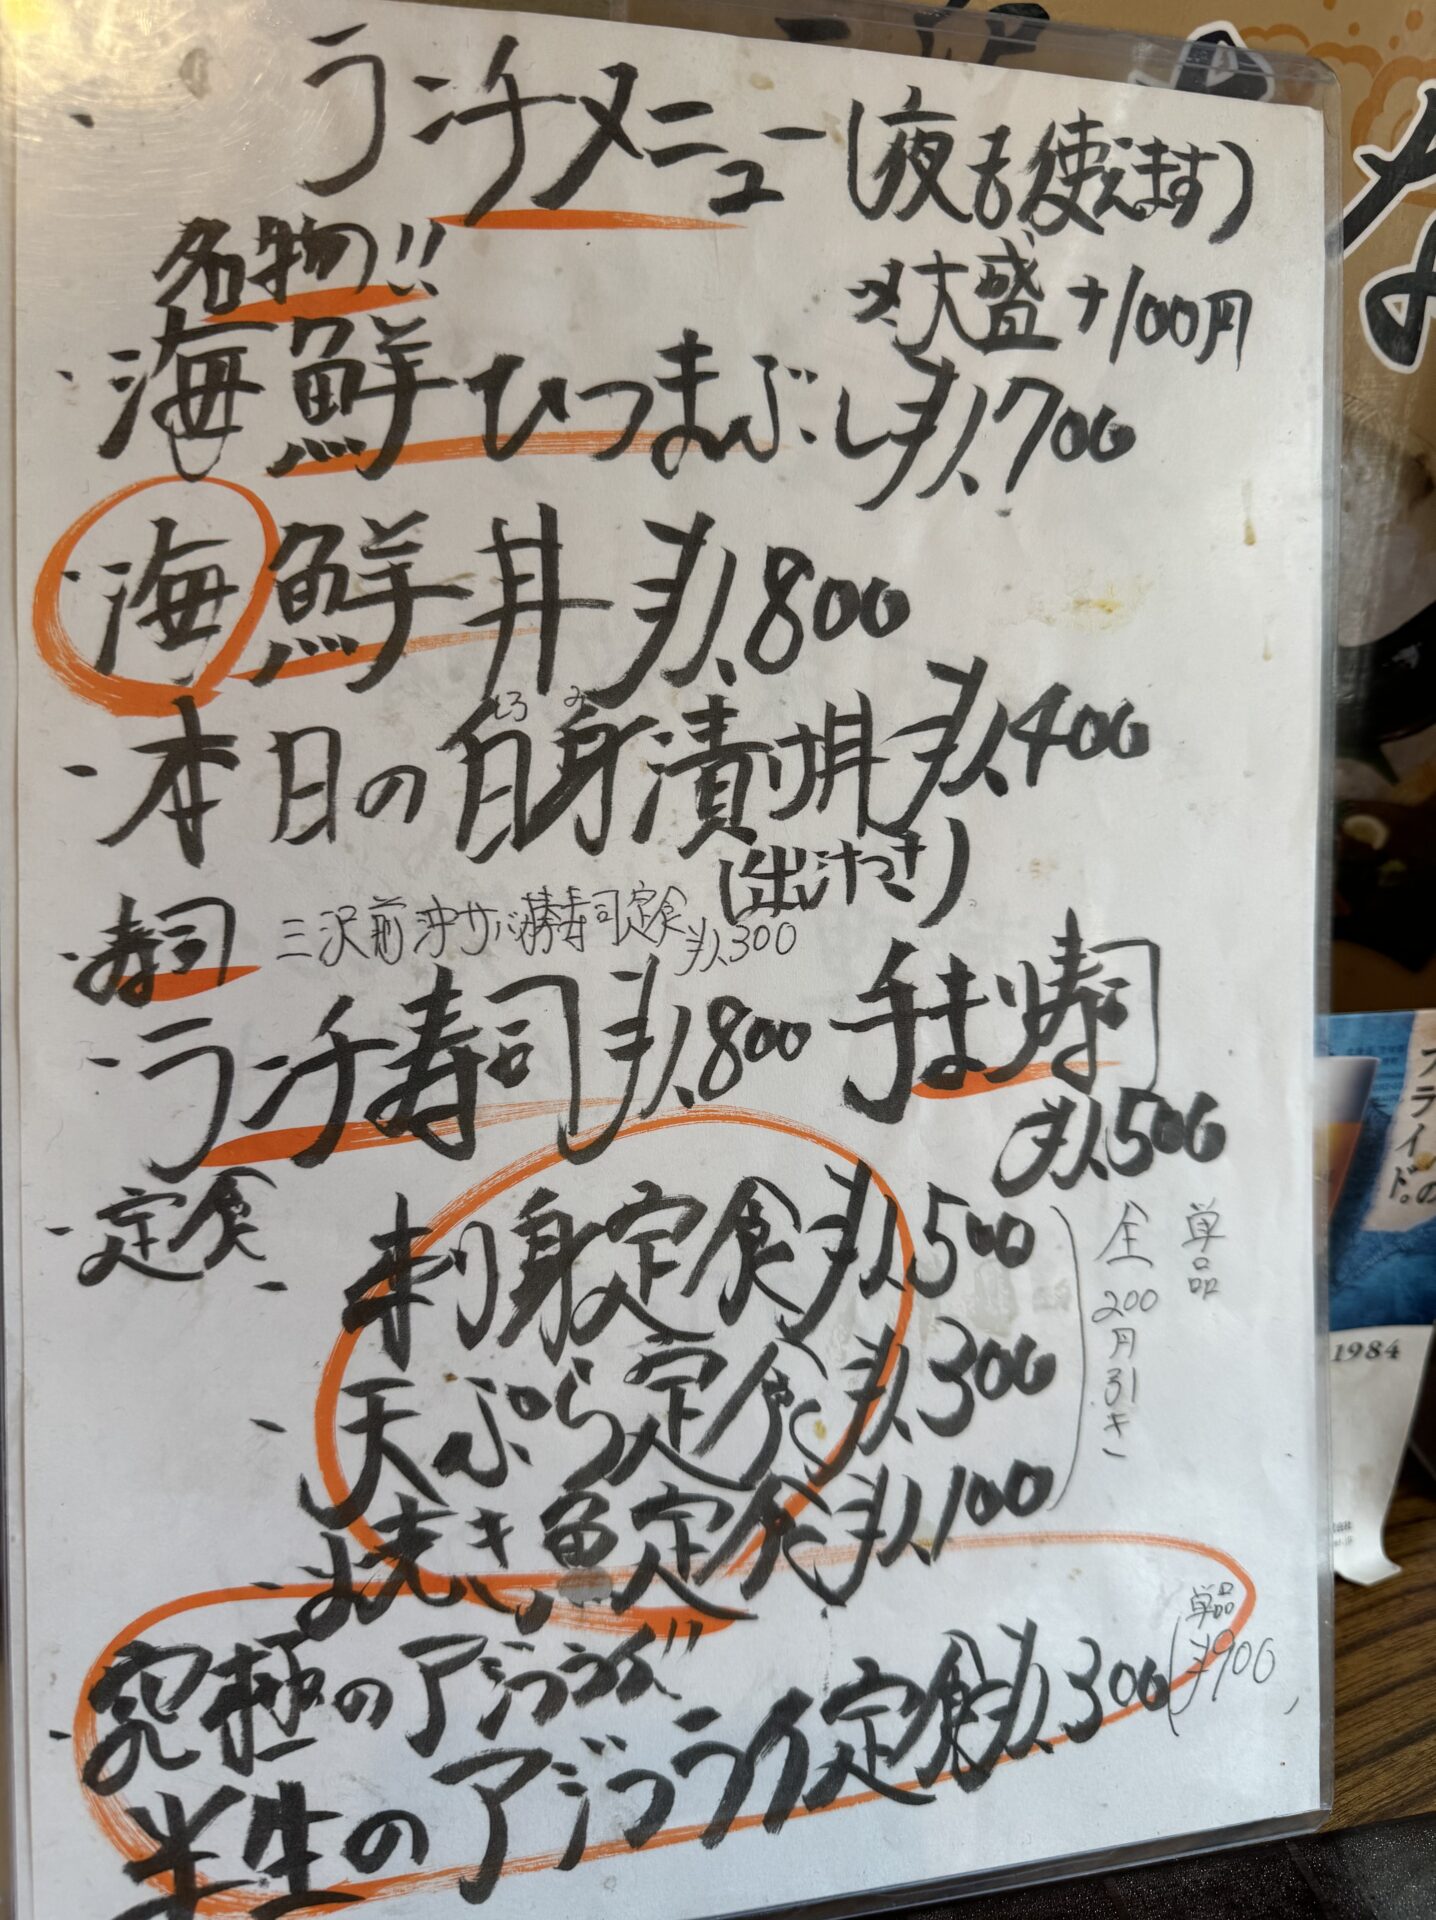 ランチメニュー(夜も使えます)
※大盛+100円
名物!!
・海鮮ひつまぶし ¥1,700
・海鮮丼 ¥1,800
しろ み
・本日の白身漬け丼 ¥1,400
(出汁つき)
・寿司 三沢前沖サバ棒寿司定食 ¥1,300
・ランチ寿司 ¥1,800 手まり寿司
¥1,500
・定食
・刺身定食 ¥1,500
・天ぷら定食 ¥1,300
・焼き魚定食 ¥1,100
単品
全200円引き
究極のアジフライ
・半生のアジフライ定食 ¥1,300 (単品 ¥900)
1984